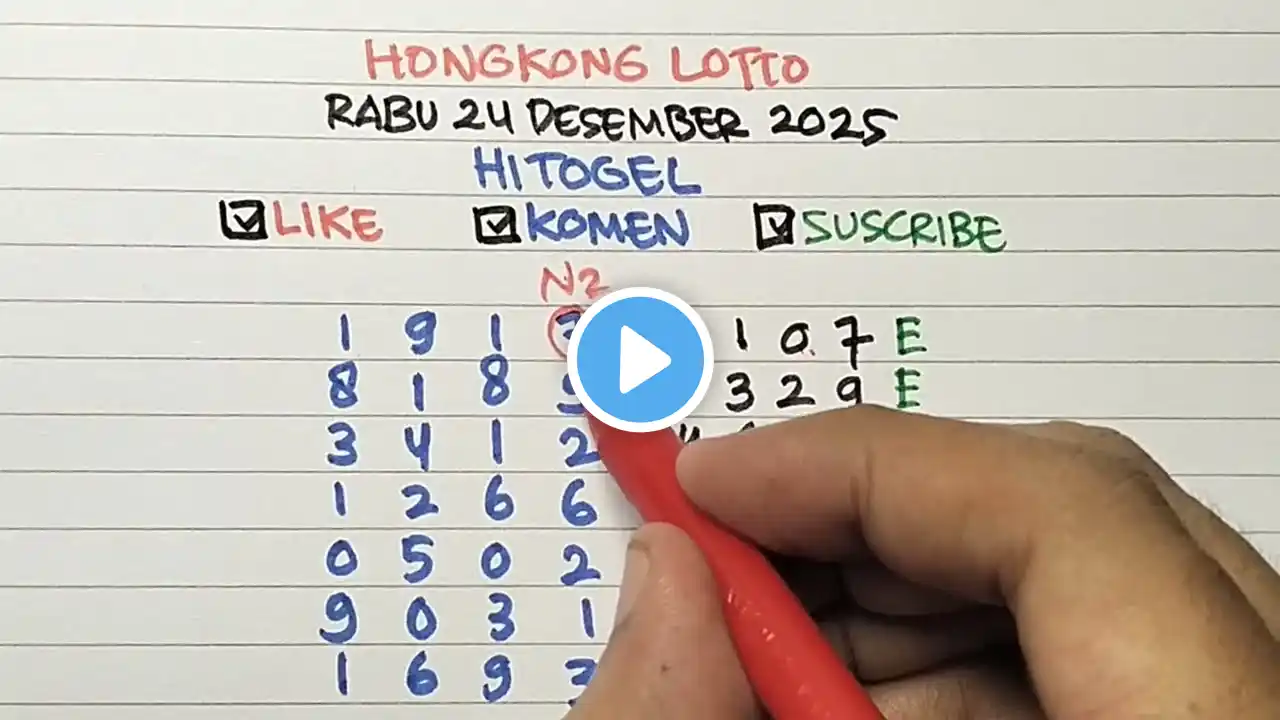 HONGKONG LOTTO
RABU 24 DESEMBER 2025
HITOGEL
LIKE KOMEN SUSCRIBE
N2
1 9 1 1 0 7 E
8 1 8 9 3 2 9 E
3 4 1 2
1 2 6 6
0 5 0 2
9 0 3 1
1 6 9 3